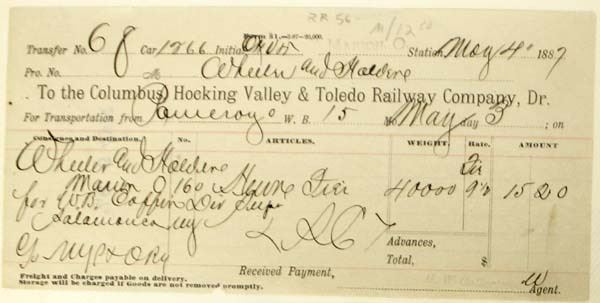 Form 31.—3-87-20,000.
Transfer No. 68 Car 1266 Initial MARION, O. Station, May 4 1887
Pro. No. M Wheeler and Holden
To the Columbus, Hocking Valley & Toledo Railway Company, Dr.
For Transportation from Pomeroy O W. B. 15 Mo. May day 3 ; on
Consignee and Destination. No. ARTICLES. WEIGHT. Rate. AMOUNT
Wheeler and Holden
Marion O 160 Ties 40000 15 20
for W.B. Coffin Div Supt
Salamanca NY
c/o NYP&O Ry
Advances,
Total, $
Freight and Charges payable on delivery.
Storage will be charged if Goods are not removed promptly.
Received Payment,
Agent.